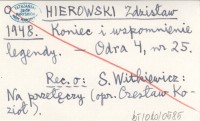 HIEROWSKI Zdzisław
1948. Koniec i wspomnienie
legendy. — Odra 4, nr 25.
Rec. o: S. Witkiewicz:
Na przełęczy (opr. Czesław Ko-
zioł).